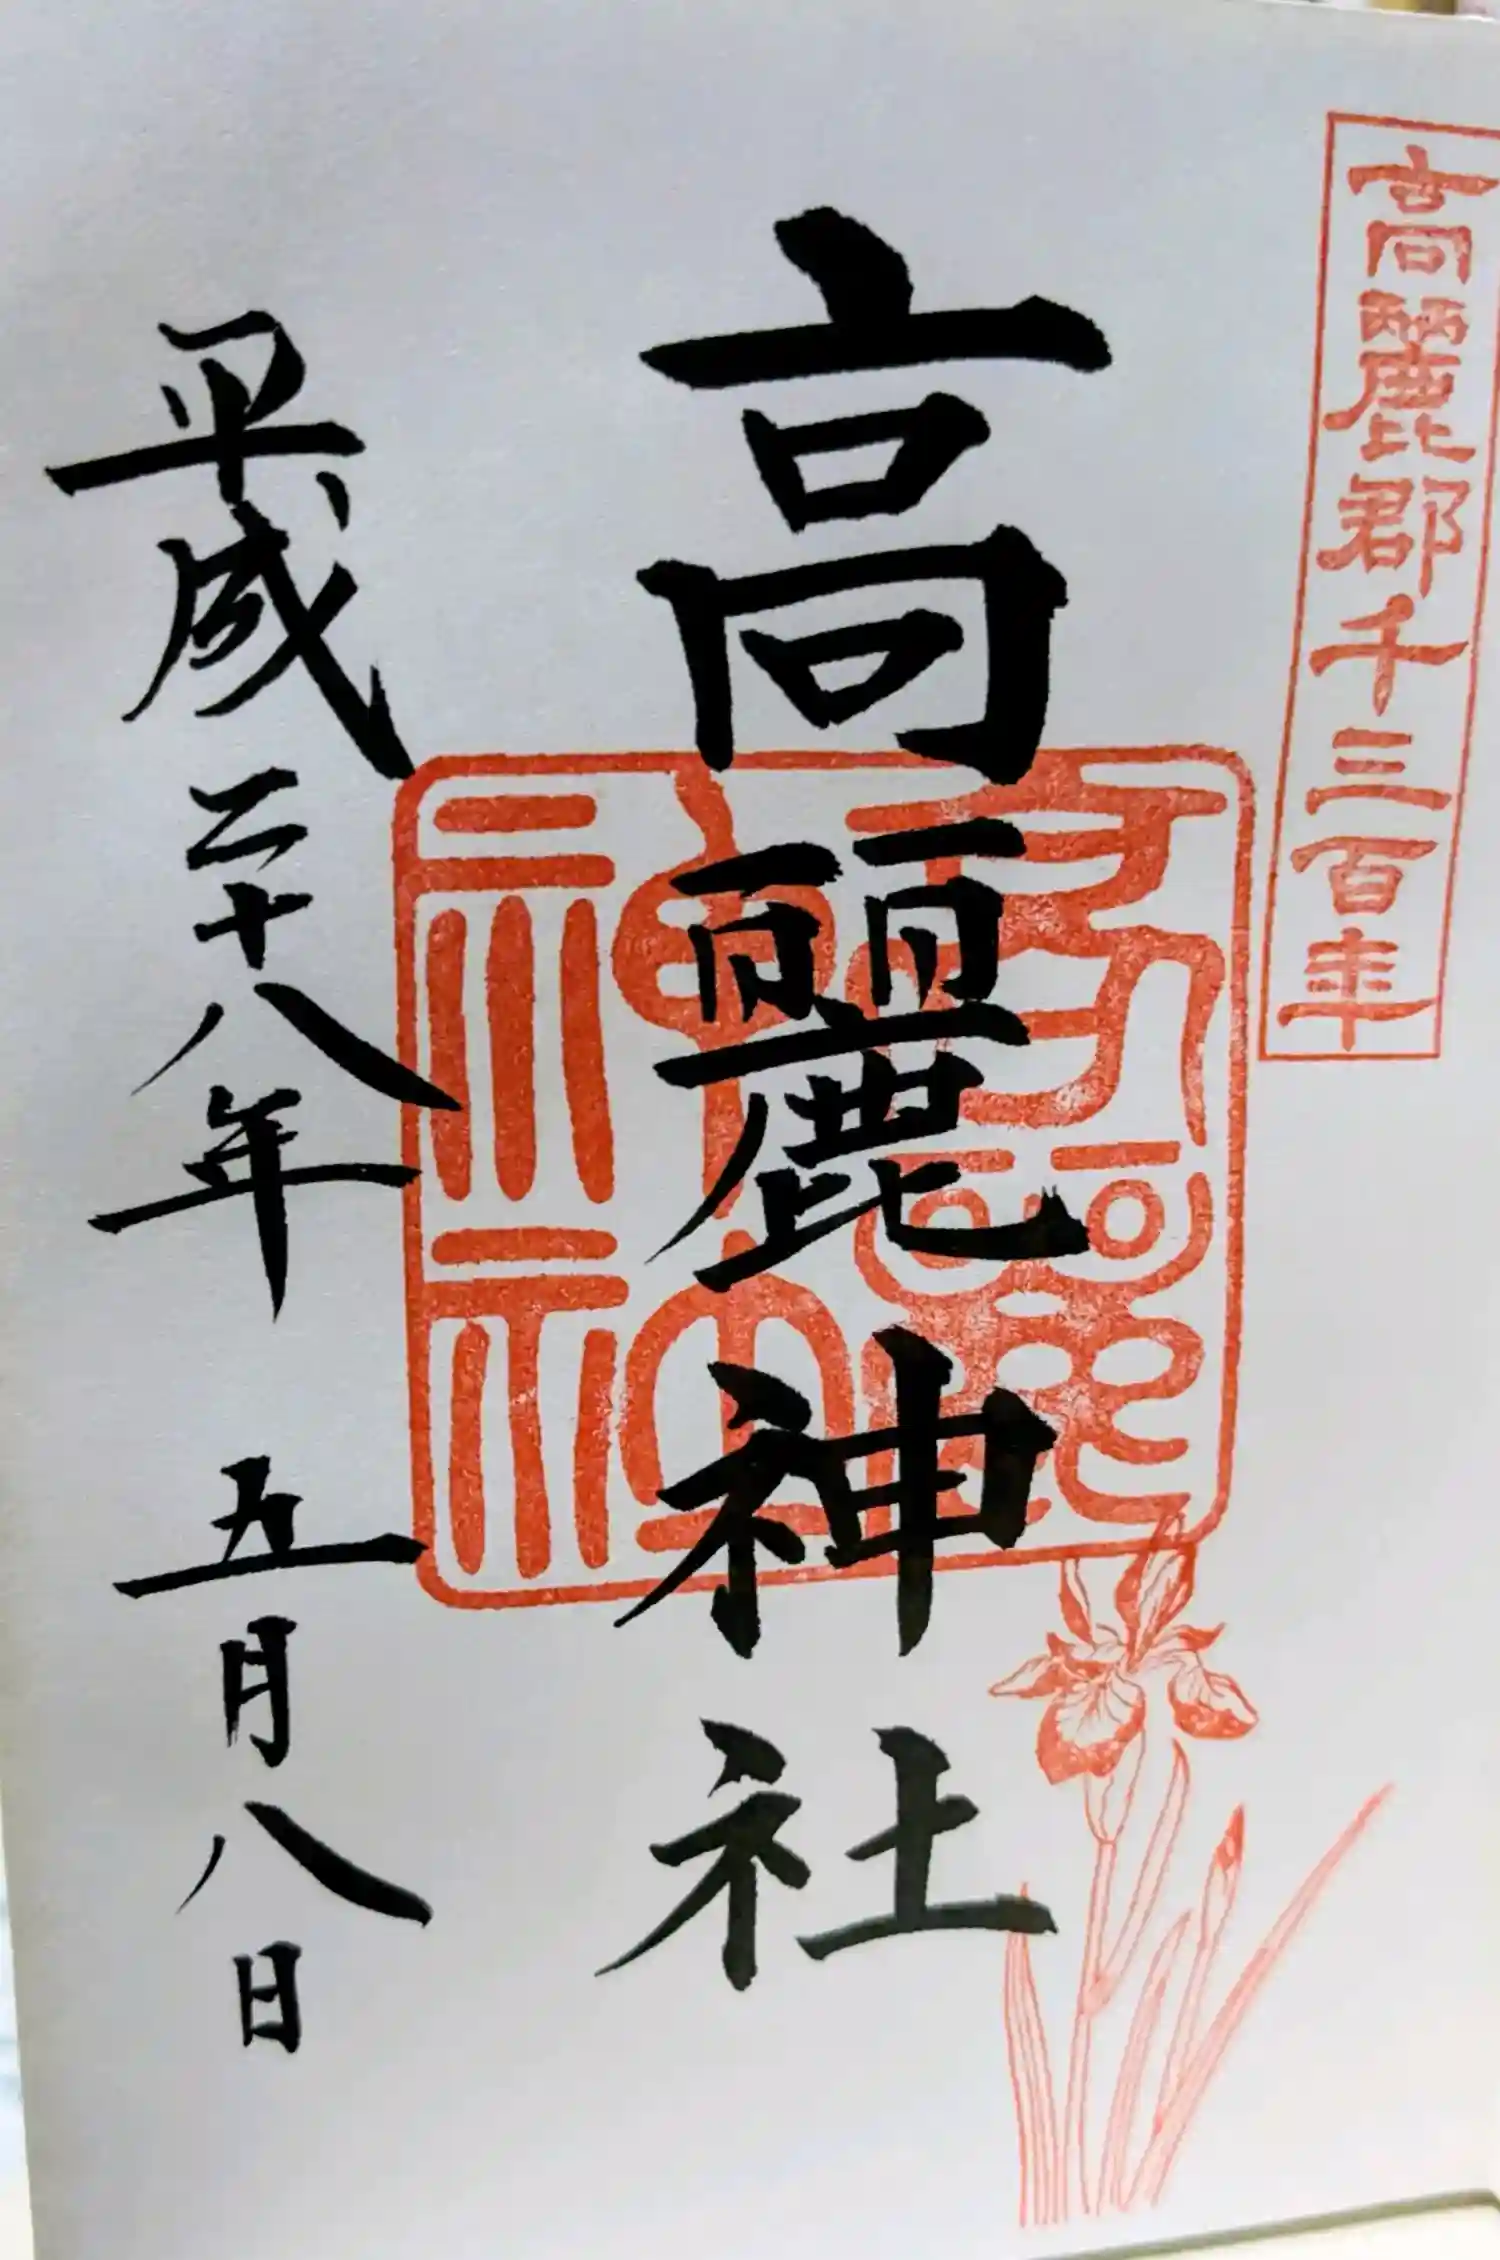 高麗郡千三百年
高麗神社
高麗神社
平成二十八年 五月八日